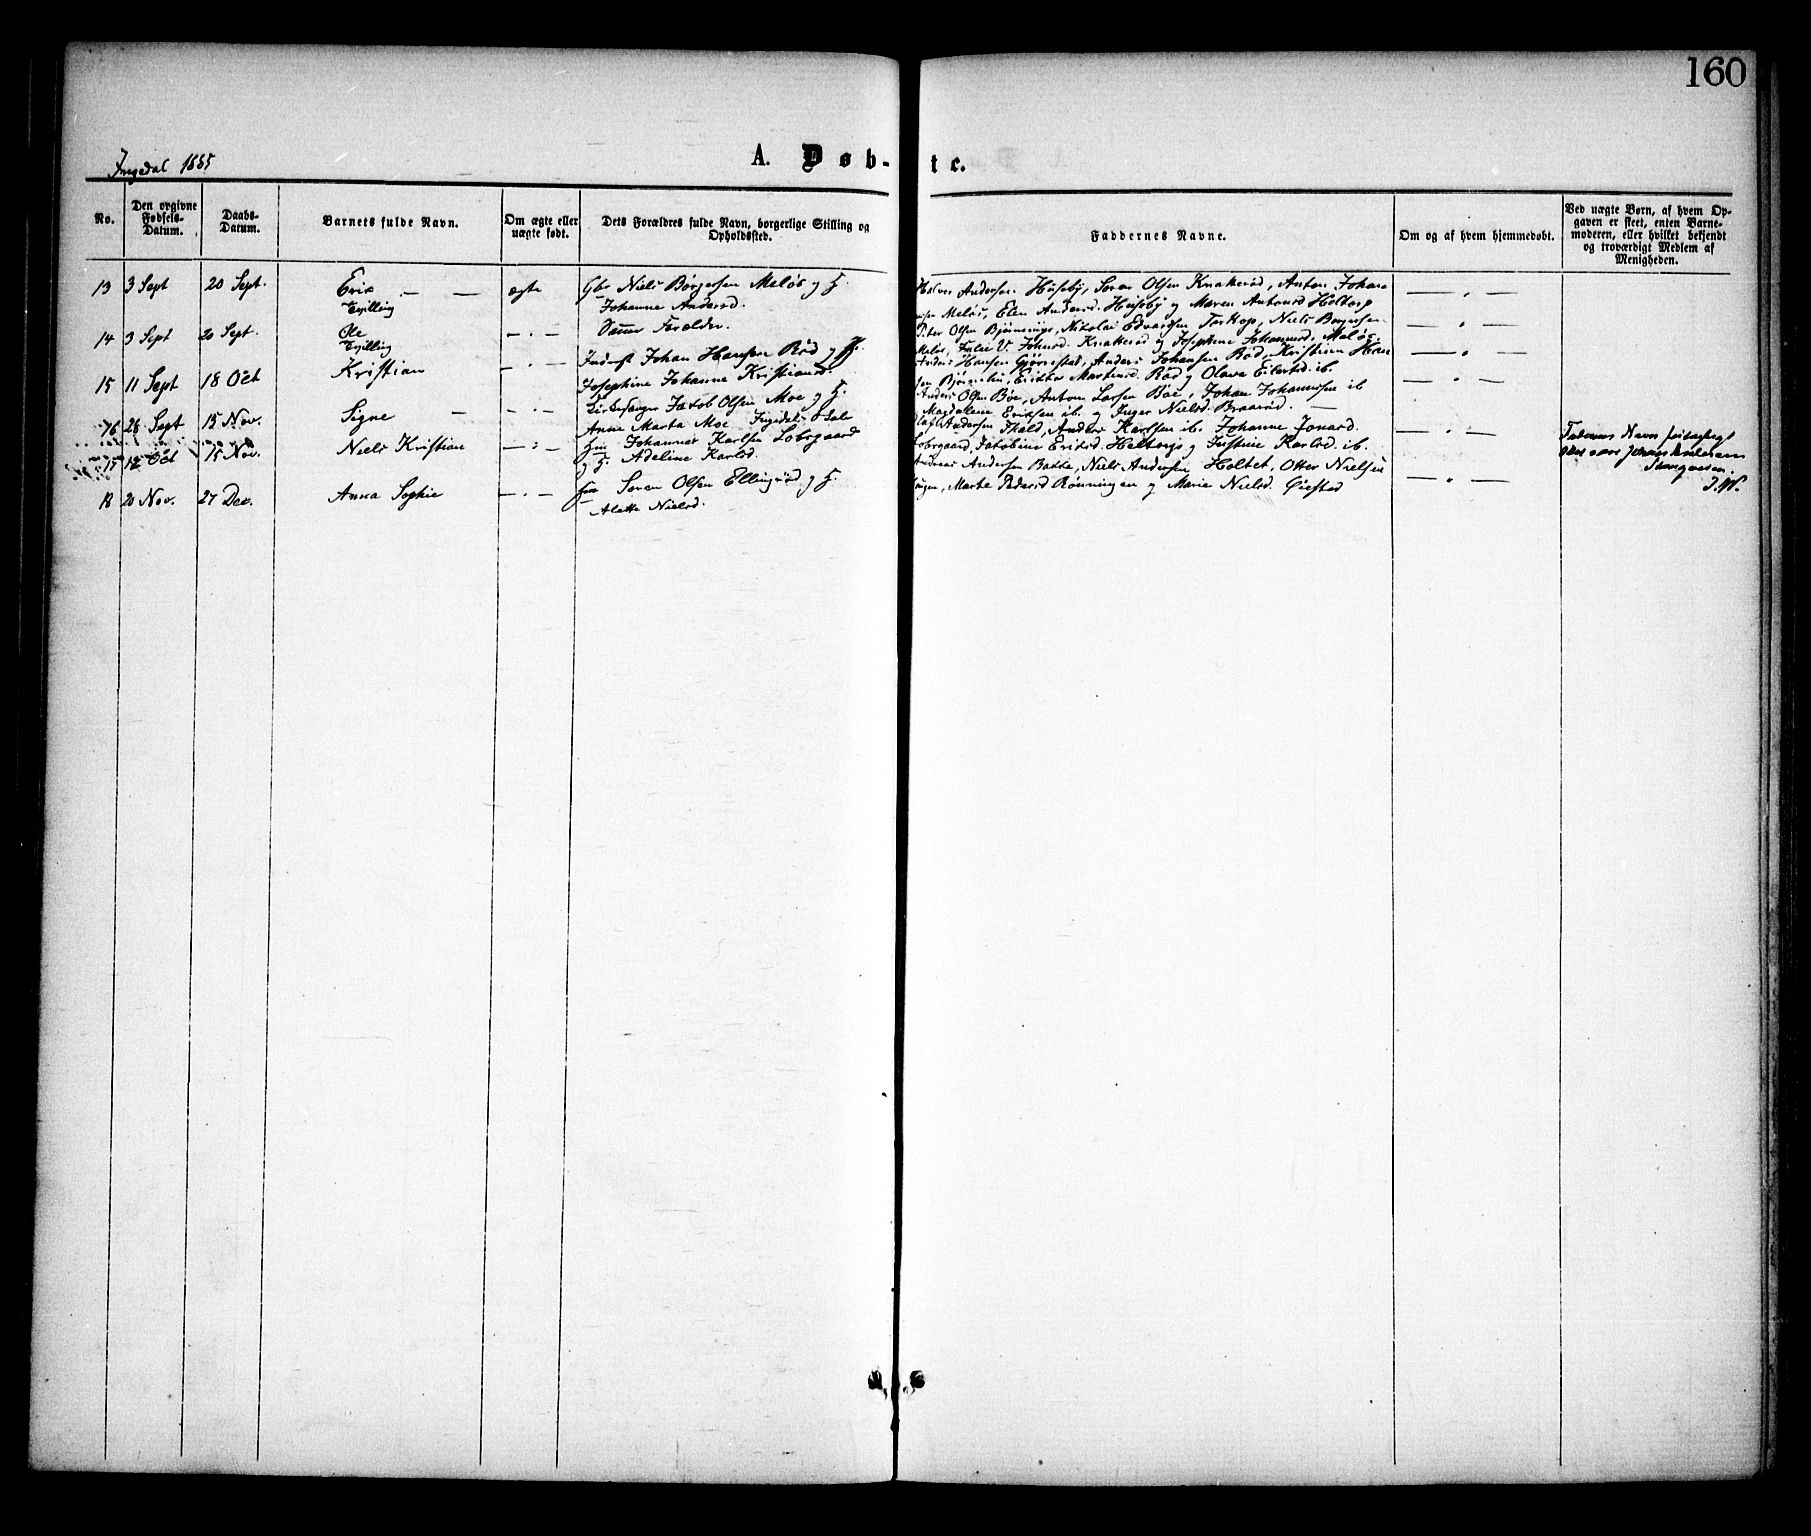 160
Ingedal 1885
A. Døb-te.
No.
Den opgivne Fødsels-Datum.
Daabs-Datum.
Barnets fulde Navn.
Om ægte eller uægte født.
Dets Forældres fulde Navn, borgerlige Stilling og Opholdssted.
Faddernes Navne.
Om og af hvem hjemmedøbt.
Ved uægte Børn, af hvem Op-
gaven er skeet, enten Barne-
moderen, eller hvilket bekjendt
og troværdigt Medlem af
Menigheden.
13 3 Sept 20 Sept. Erik — — ægte Gbr Niels Børgersen Meløs og H.
Tvilling Johanne Andersd.
Halvor Andersen Huseby, Søren Olsen Knatterød, Anton Johan
sen Meløs, Elen Andersd. Huseby og Maren Antonsd Holtorp
14 3 Sept 20 Sept. Ole — . — Samme Forældre.
Tvilling
Peter Olsen Bjørnsinge, Nikolai Edvardsen Torskop, Niels Børgersen
Meløs, Julie V. Johnsd. Knatterød og Josephine Johannesd. Meløs
15 11 Sept 18 Oct Kristian — . — Inderst Johan Hansen Rød og H.
Josephine Johanne Kristiansd.
Anders Hansen Gjørestad, Anders Johansen Rød, Kristian Han
sen Martinsd. Rød og Olava Eilertsd. ib.
16 26 Sept 15 Nov. Signe — — . — Kirkesanger Jacob Olsen Moe og H.
Anne Marta Moe Ingedals Skole
Anders Olsen Bøe, Anton Larsen Bøe, Johan Johannesen ib
Magdalene Eriksen ib. og Inger Nielsd. Braarød.
17 12 Oct 15 Nov. Niels Kristian — . — Johannes Karlsen Lobrgaard
og H. Adeline Karlsd.
Olaf Andersen Skold, Anders Karlsen ib. Johanne Jonasd.
Lobrgaard, Jakobine Eriksd. Holtorp og Justine Karlsd. ib.
Faderens Navn
skal være Johan
J. W.
18 20 Nov. 27 Dec. Anna Sophie — . — Søren Olsen Ellingsrød og H.
Alette Nielsd.
Andreas Andersen Bakke, Niels Andersen Holtet, Otter Nielsen
Marte Pedersd Rønningen og Marie Nielsd. Gjestad